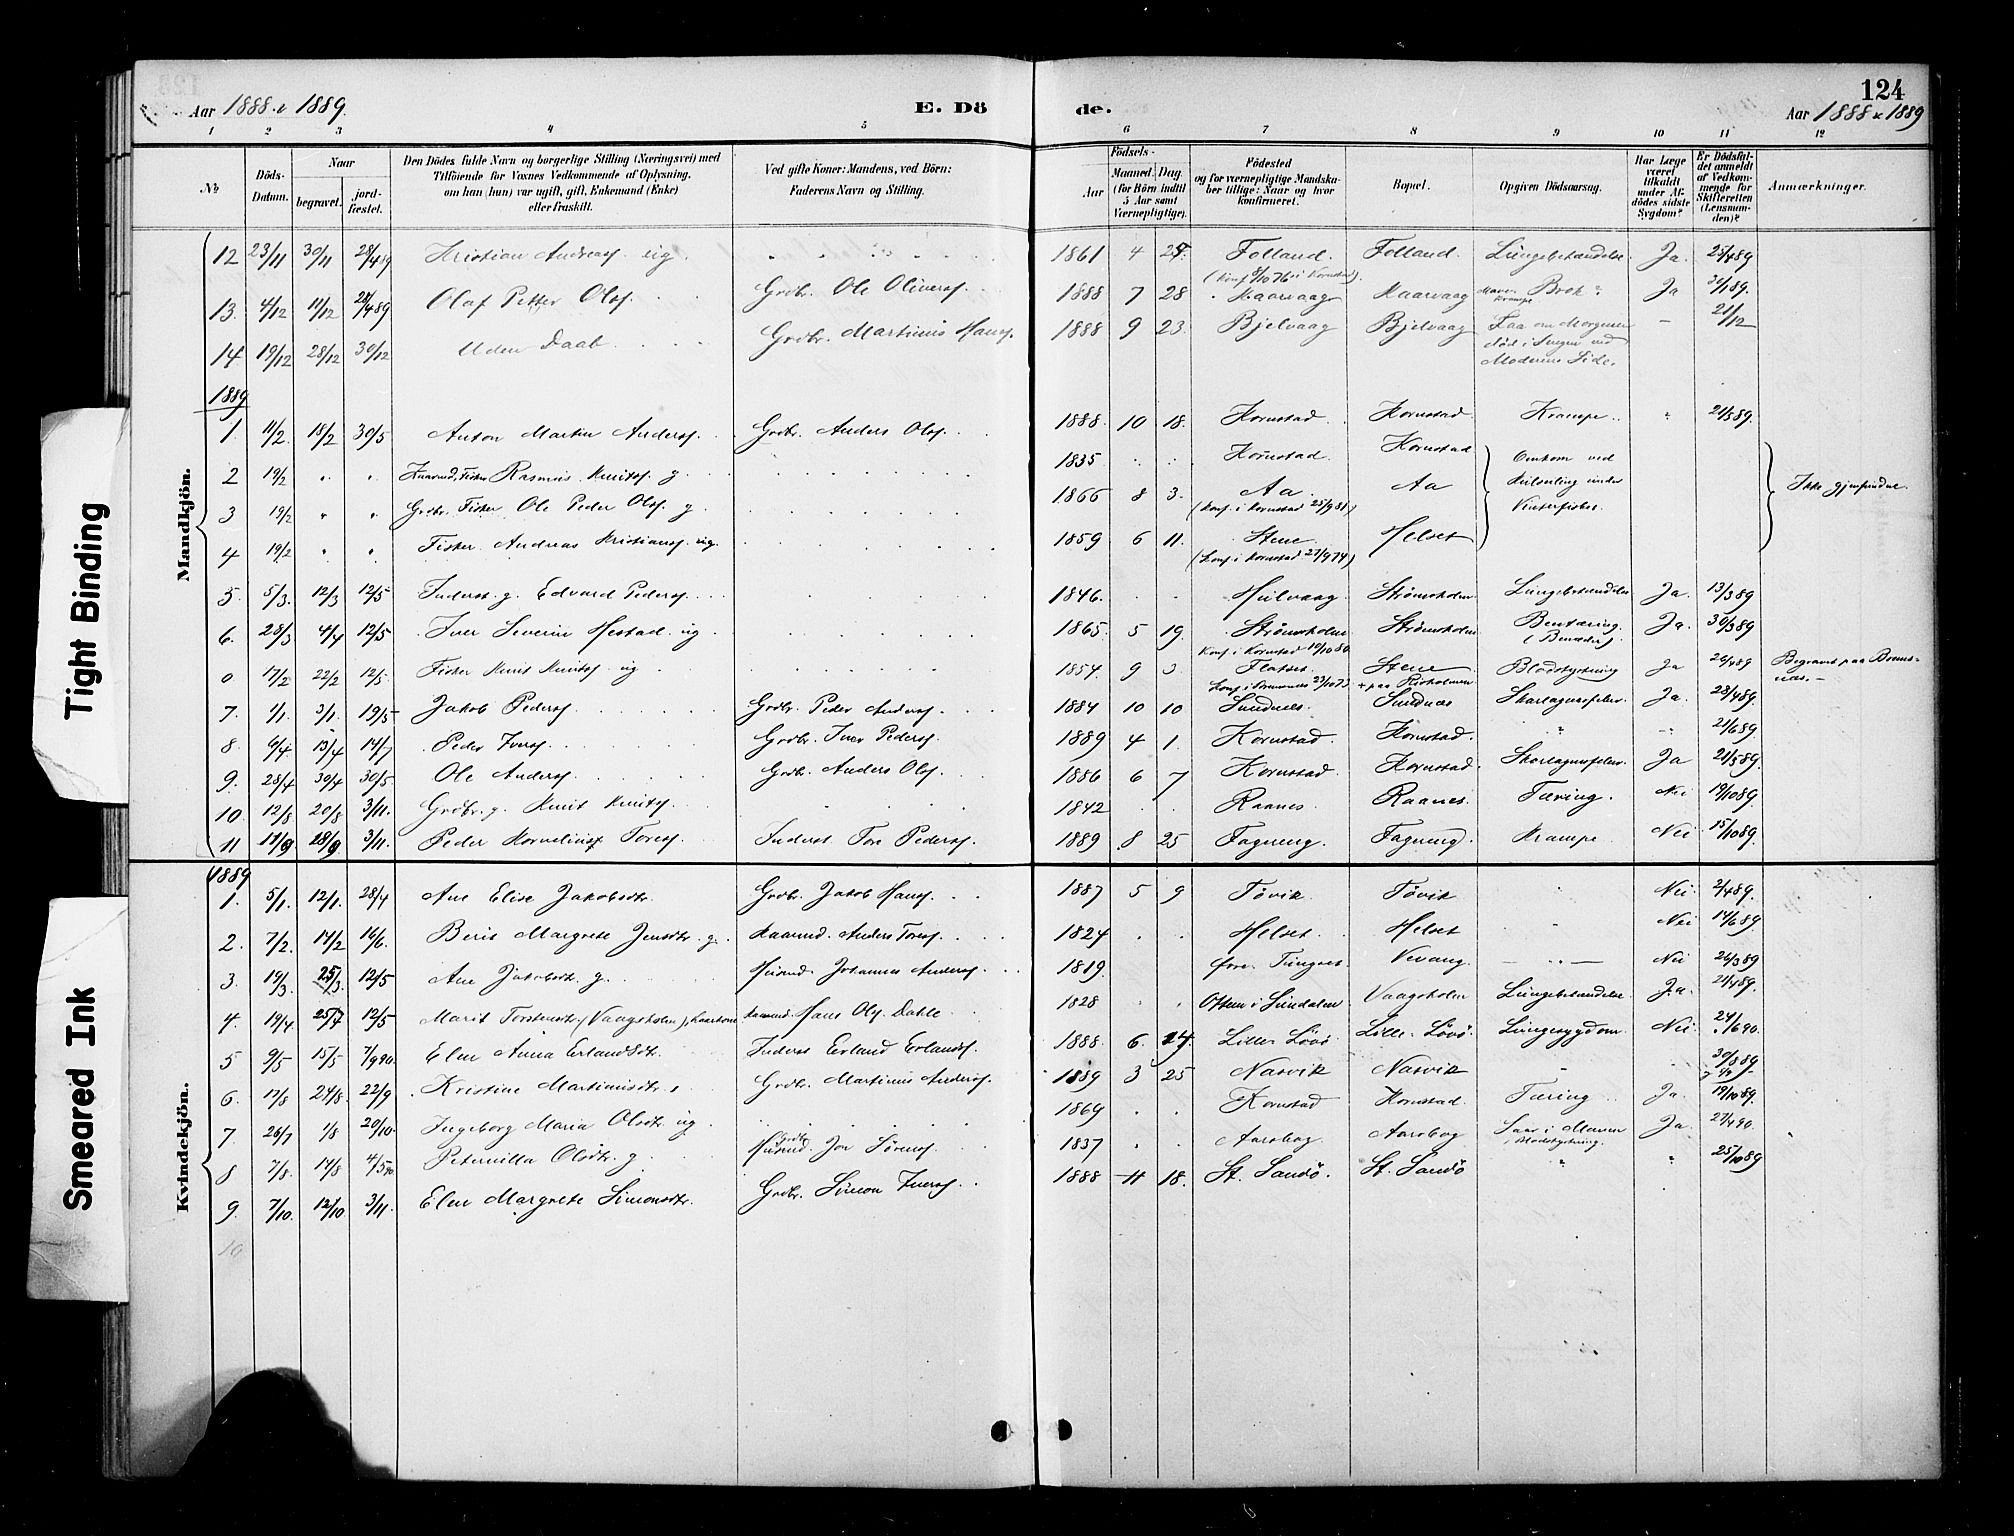 124
Aar 1888 & 1889.
E. Dö
de.
Aar 1888 & 1889
1 2 3 4 5 6 7 8 9 10 11 12
No
Döds-Datum.
Naar
begravet.
jord-fæstet.
Den Dödes fulde Navn og borgerlige Stilling (Næringsvei) med
Tilföiende for Voxnes Vedkommende af Oplysning,
om han (hun) var ugift, gift, Enkemand (Enke)
eller fraskilt.
Ved gifte Koner: Mandens, ved Börn:
Faderens Navn og Stilling.
Födsels-
Aar
Maaned. Dag.
(for Börn indtil
5 Aar samt
Værnepligtige).
Födested
og for værnepligtige Mandska-
ber tillige: Naar og hvor
konfirmeret.
Bopæl.
Opgiven Dödsaarsag.
Har Læge
været
tilkaldt
under Af-
dödes sidste
Sygdom?
Er Dödsfal-
det anmeldt
af Vedkom-
mende for
Skifteretten
(Lensman-
den)?
Anmærkninger.
Mandkjön.
12 23/11 30/11 28/4 89 Kristian Anders. ug. 1861 4 27. Folland. (Konf. 8/10 76 i Kornstad) Folland. Lungebetændelse Ja. 25/4 89
13. 4/12 11/12 28/4 89 Olaf Petter Ols. Grdbr. Ole Olivers. 1888 7 28 Kaarvaag Kaarvaag Krampe Ja 30/1 89.
14 19/12 28/12 30/12 Uden Daab Grdbr. Martinus Hans. 1888 9 23. Bjelvaag Bjelvaag Laa om Morgenen død i Sengen ved Moderens Side. - 21/12
1889
1. 11/2. 18/2 30/5 Anton Martin Anders. Grdbr. Anders Ols. 1888. 10 18. Kornstad. Kornstad. Krampe. " 21/5 89.
2 19/2 " " Fisker Rasmus Knuts. g. 1835 Kornstad. Kornstad Omkom ved
3 19/2 " " Grdbr. Fisker Ole Peder Ols. g. 1866 8 3. Aa. (Konf. i Kornstad 25/9 81) Aa Kulseiling under Ikke gjenfundne.
4 19/2 " " Fisker. Andreas Kristians. ug. 1859 6 11. Stene (Konf. i Kornstad 27/9 74) Helset Vinterfisket.
5. 5/3. 12/3 12/5 Inderst. g. Edvard Peders. 1846. Hulvaag. Strømsholm Lungebetændelse Ja. 13/3 89
6. 28/3 4/4 12/5 Iver Severin Hestad. ug 1865. 5 19. Strømsholm Konf. i Kornstad 19/10 80. Strømsholm Bentæring. Ja. 30/3 89
0 17/2 22/2 12/5. Fisker Knut Knuts. ug 1854. 9 3. Flatset. Stene + paa Risholmen Blodstyrtning Ja 26/4 89 Begravet paa Brems-næs.
7. 1/1. 3/1. 19/5 Jakob Peders. Grdbr. Peder Anders. 1884 10 10 Sundnæs. Sundnæs Skarlagensfeber. Ja. 28/4 89.
8. 6/4 13/4 14/7 Peder Ivers. Grdbr. Iver Peders. 1889 4 1. Kornstad. Kornstad. " 21/6 89.
9. 28/4 30/4 30/5. Ole Anders. Grdbr. Anders Ols. 1886 6 7 Kornstad. Kornstad. Skarlagensfeber. Ja 21/5 89.
10. 12/8 20/8 3/11. Grdbr. g. Knut Knuts. 1842 Raanes. Raanes. Tæring. Nei 19/10 89.
11 17/9 28/9 3/11. Peder Kornelius Tores. Inderst Tore Peders. 1889 8 25 Fagneng. Fagneng. Krampe Nei 15/10 89.
Kvindekjön.
1889
1. 5/1. 12/1. 28/4 Ane Elise Jakobsdtr. Grdbr. Jakob Hans. 1887 5 9 Tøvik. Tøvik Nei. 2/4 89.
2. 7/2. 14/2 16/6. Berit Margrete Jensdtr. g. Kaarmd. Anders Tores. 1824 Helset. Helset Nei 14/6 89
3. 19/3. 25/3. 12/5 Ane Jakobsdtr. g. Huusmd. Johannes Anders. 1819. Øvre Tungnes Vevang. Nei 26/3 89
4. 19/4 25/4 12/5 Marit Torstensdtr. (Vaagsholm) Kaarmd. Hans Ols. Dahle. 1828 i Sundalen Vaagsholm Lungebetændelse. Ja. 21/4 89.
5 9/5 15/5 7/9 90. Elen Anna Erlandsdtr. Inderst Erland Erlands. 1888. 6. 24. Lille Løvø. Lille Løvø. Lungesygdom. Nei. 24/6 90.
6. 17/8 24/8. 22/9 Kristine Martinusdtr. Grdbr. Martinus Anders. 1889 3 25 Nasvik Nasvik 30/8 89
7. 26/7 1/8 20/10. Ingeborg Maria Olsdtr. ug 1869 Kornstad Kornstad. Tæring. Ja. 19/10 89.
8 7/8. 14/8 4/5 90 Peternilla Olsdtr. g. Jon Sørens. 1837 Aarsbog Aarsbog Saar i Maven, Blodstyrtning. Ja. 27/4 90.
9. 7/10. 12/10 3/11. Elen Margrete Simonsdtr. Grdbr. Simon Ivers. 1888 11 18. St. Sandø. St. Sandø " " 25/10 89
10
Tight Binding
Smeared Ink